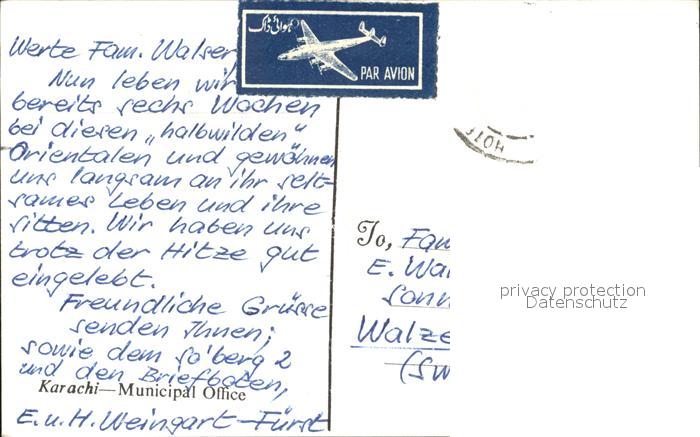 ہوائی ڈاک
PAR AVION
Werte Fam. Walser
Nun leben wir
bereits sechs Wochen
bei diesen „halbwilden"
Orientalen und gewöhnen
uns langsam an ihr selt-
sames Leben und ihre
sitten. Wir haben uns
trotz der Hitze gut
eingelebt.
Freundliche Grüsse
senden Ihnen;
sowie dem So'berg 2
und den Briefboten,
Karachi—Municipal Office
E. u. H. Weingart-Fürst
HOTE
To, Fam
E. Wal
Sonn
Walze
(Sw
privacy protection
Datenschutz